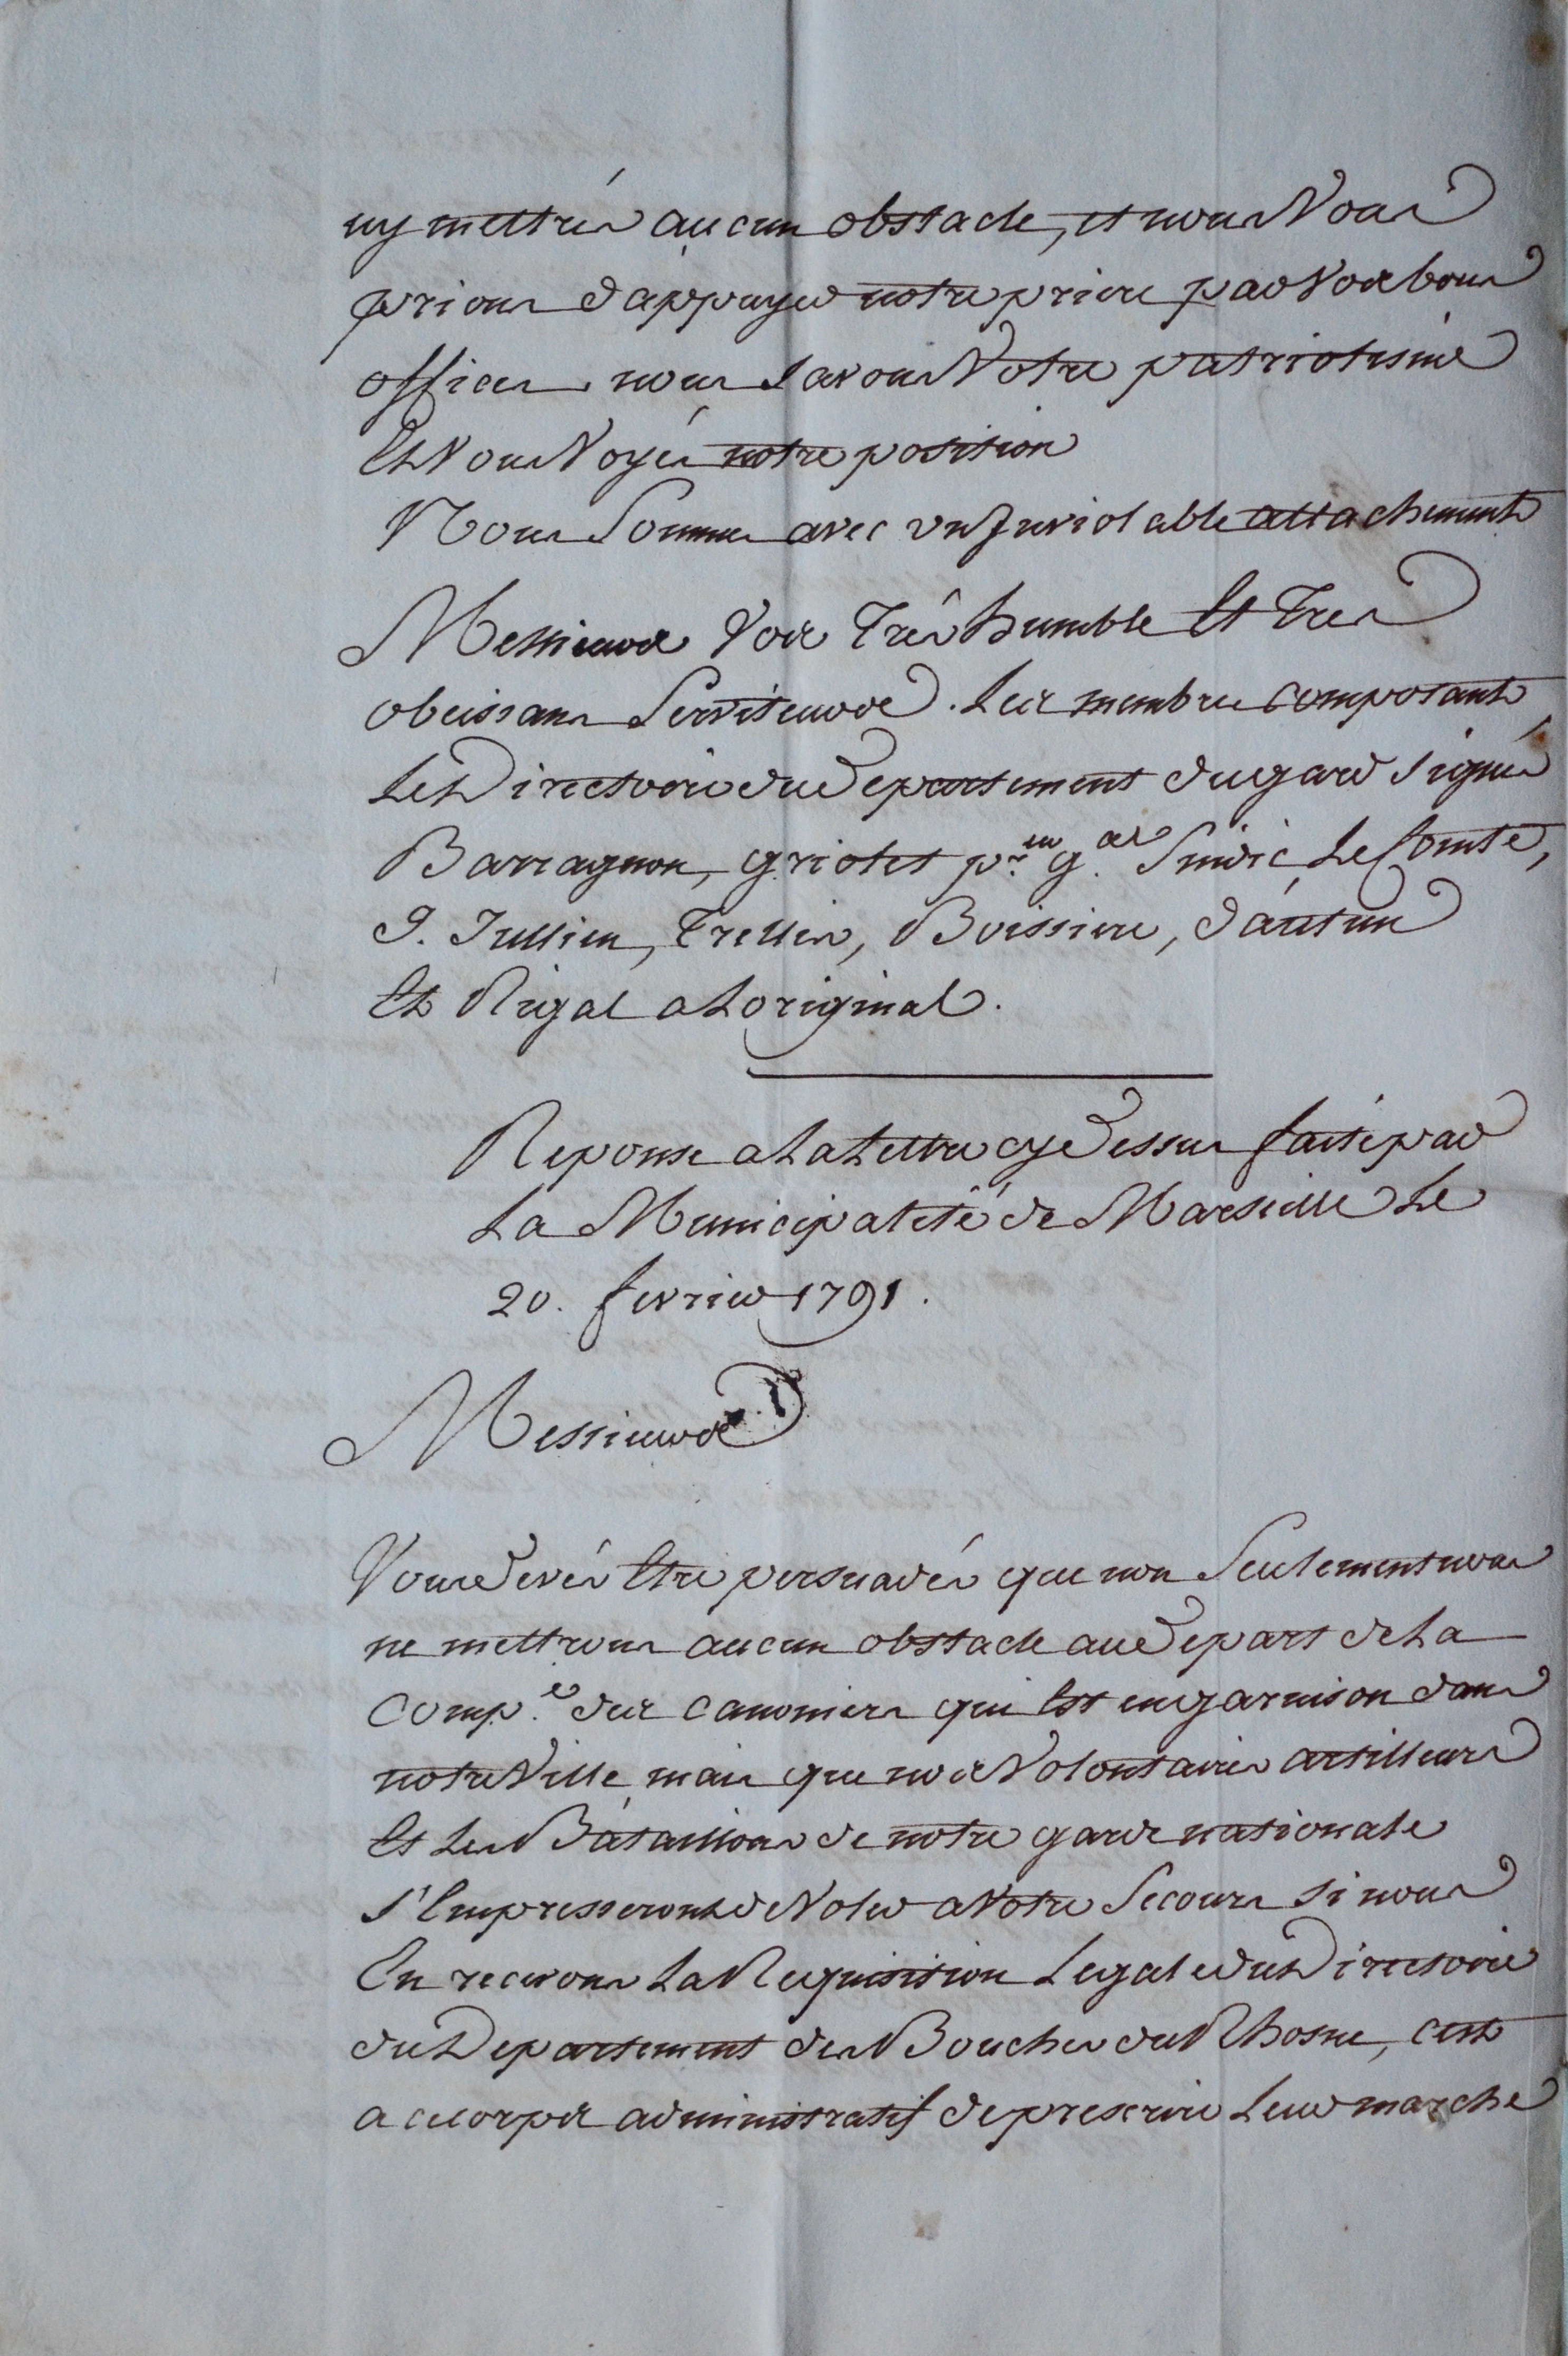 ny mettrés aucun obstacle, et nous Vous
prions d'appuyer notre priere par Vos bons
offices, nous savons Votre patriotisme
Et Vous Voyés notre position
Nous Sommes avec un Inviolable attachement
Messieurs Vos Trés humble Et Tres
obeissans Serviteurs. Les membres composant
Le Directoire du Departement du gard signés
Barragnon, griolet pr.eur g.al Sindic, Le Comte,
J. Jullien, Trellis, Boissiere, d'autun
Et Rigal a Loriginal.
Reponse a La Lettre cy Dessus faite par
La Municipalité de Marseille Le
20. fevrier 1791.
Messieurs
Vous Devés Etre persuadés que non Seulement nous
ne mettrons aucun obstacle au Depart de La
Comp.e des canoniers qui Est en garnison dans
notre Ville, mais que nos Volontaires artilleurs
Et Les Bataillons de notre garde nationale
s'Empresseront de Voler a Votre Secours si nous
En recevons La Requisition Legale du Directoire
du Departement des Bouches du Rhosne, cest
a ce corps administratif de prescrire Leur marche